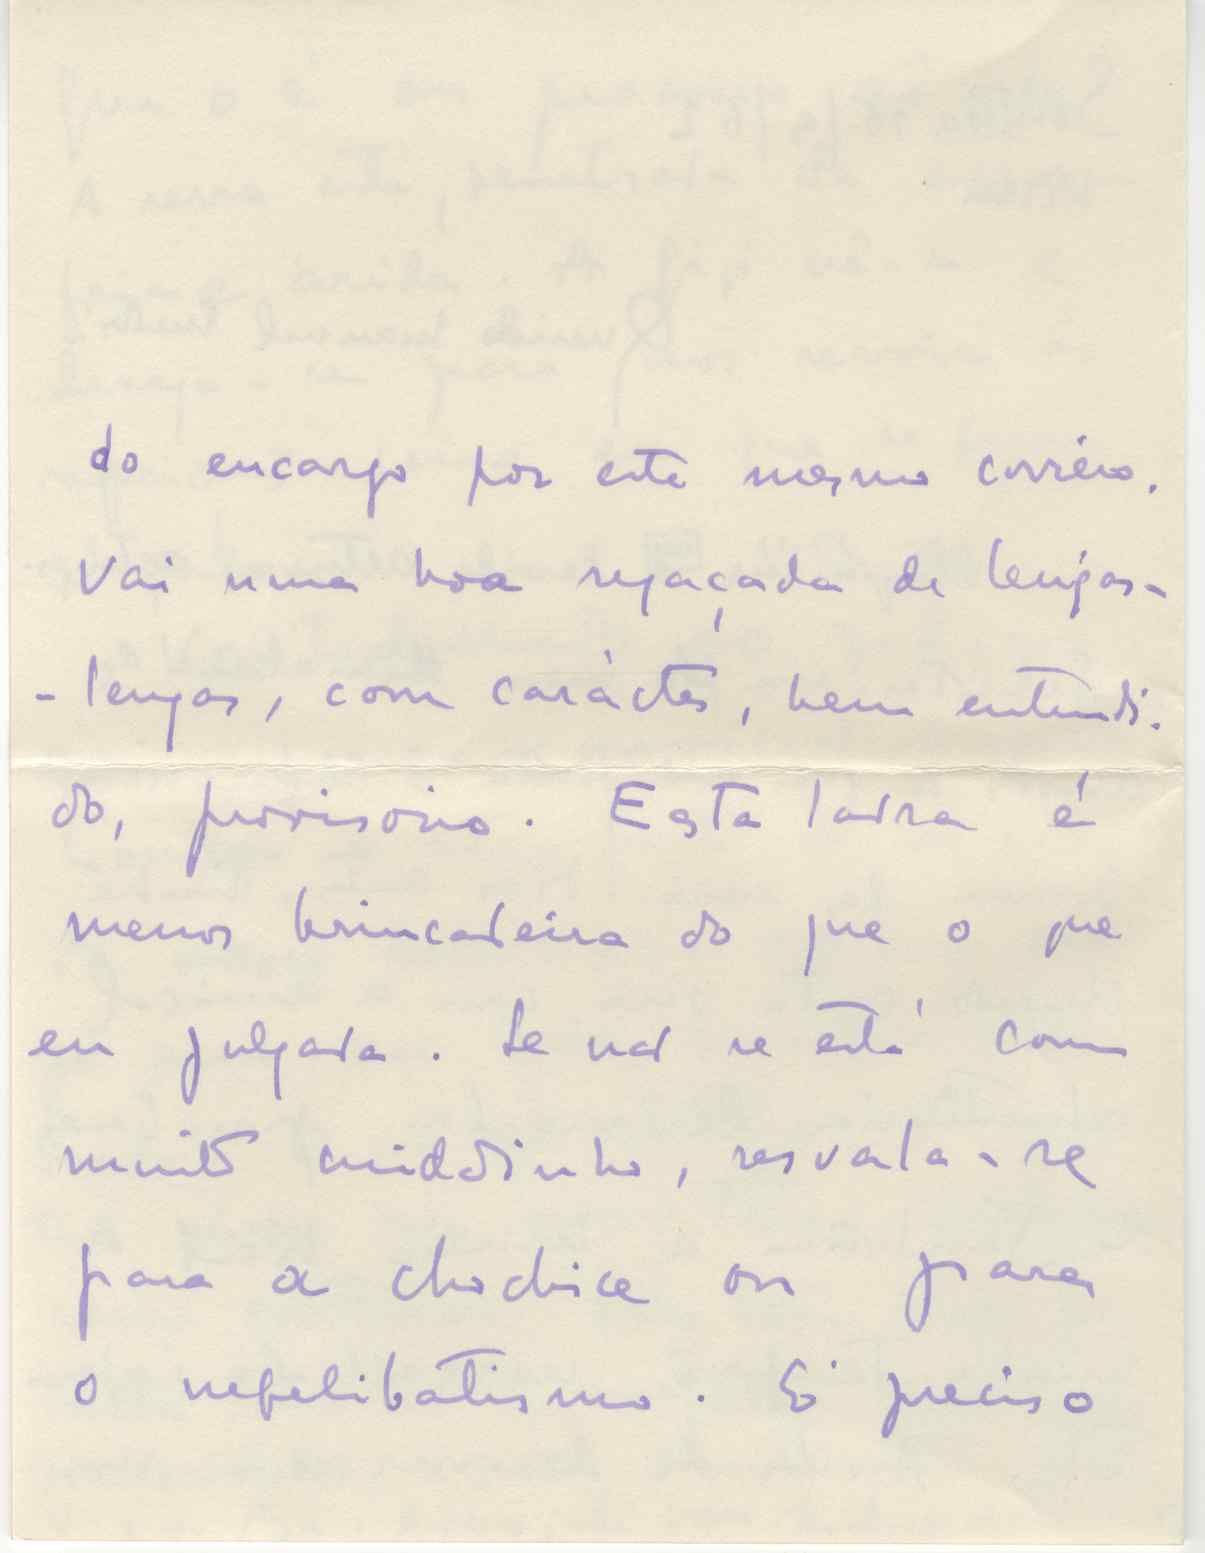 do encargo por este mesmo corrèio.
Vai uma boa regaçada de lengas-
-lengas, com carácter, bem entendi-
do, provisório. Esta lavra é
menos brincadeira do que o que
eu julgava. Se não se está com
muito cuidadinho, resvala-se
para a chochice ou para
o nefelibatismo. É preciso